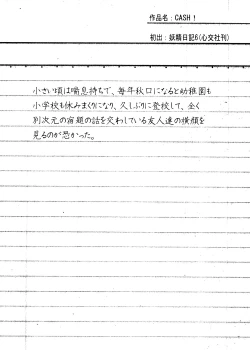 作品名：CASH！
初出：妖精日記6(心交社刊)
小さい頃は喘息持ちで、毎年秋口になると幼稚園も
小学校も休みまくりになり、久しぶりに登校して、全く
別次元の宿題の話を交わしている友人達の横顔を
見るのが恐かった。